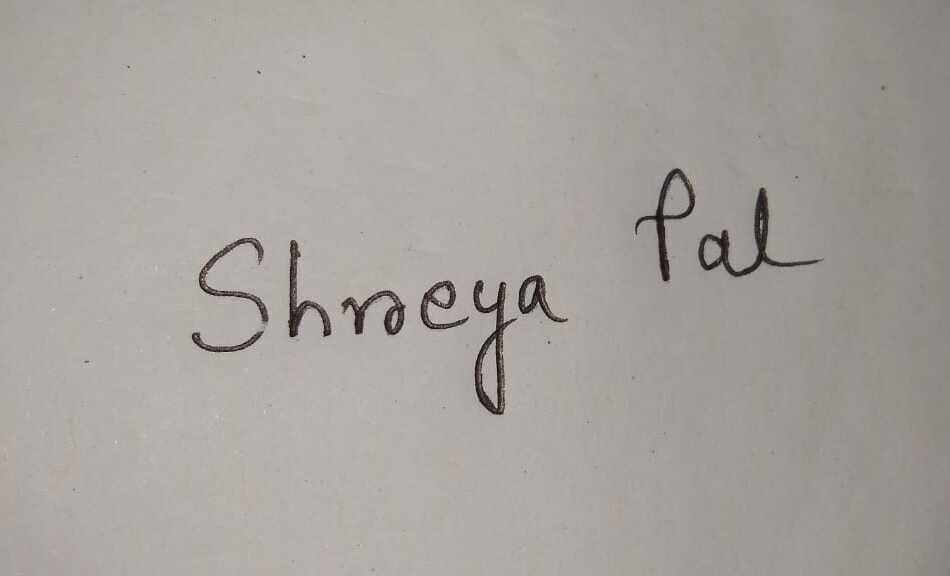 Shreya Pal